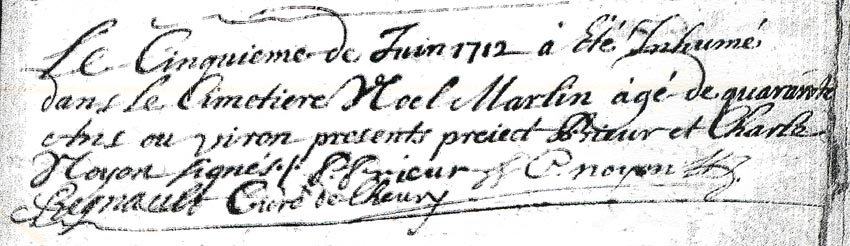 Le Cinquieme de Juin 1712 à Eté Inhumé
dans le Cimetiere Noel Martin âgé de quarante
Ans ou viron presents preiect Prieur et Charle
Noyon signés P. prieur C. noyon
Regnault Curé de Cheury